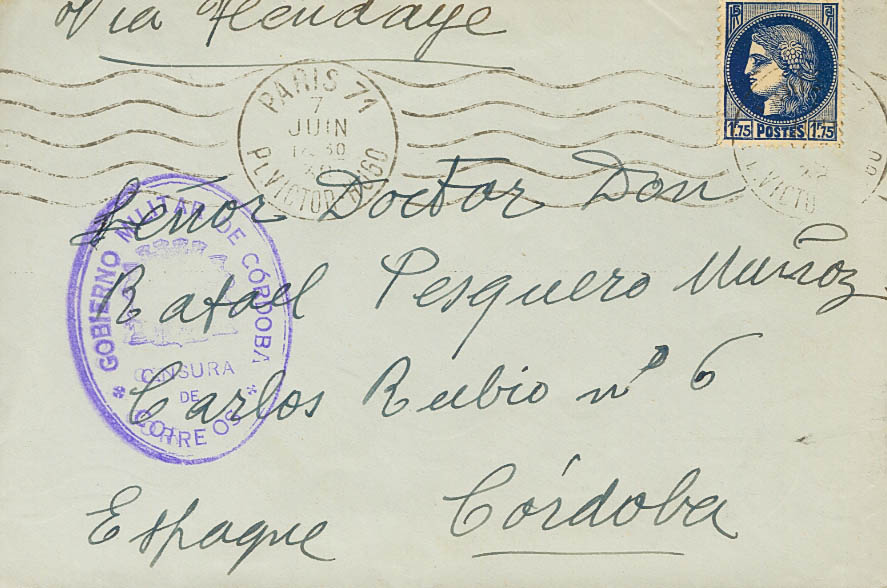 Via Hendaye
15 F
1.75 POSTES 1.75
PARIS 71
7
JUIN
30
PL. VICTOR HUGO
L. VICTO
GO
Señor Doctor Don
Rafael Pesquero Muñoz
Carlos Rubio nº 6
Córdoba
Espagne
GOBIERNO MILITAR DE CÓRDOBA
CENSURA
DE
CORREOS